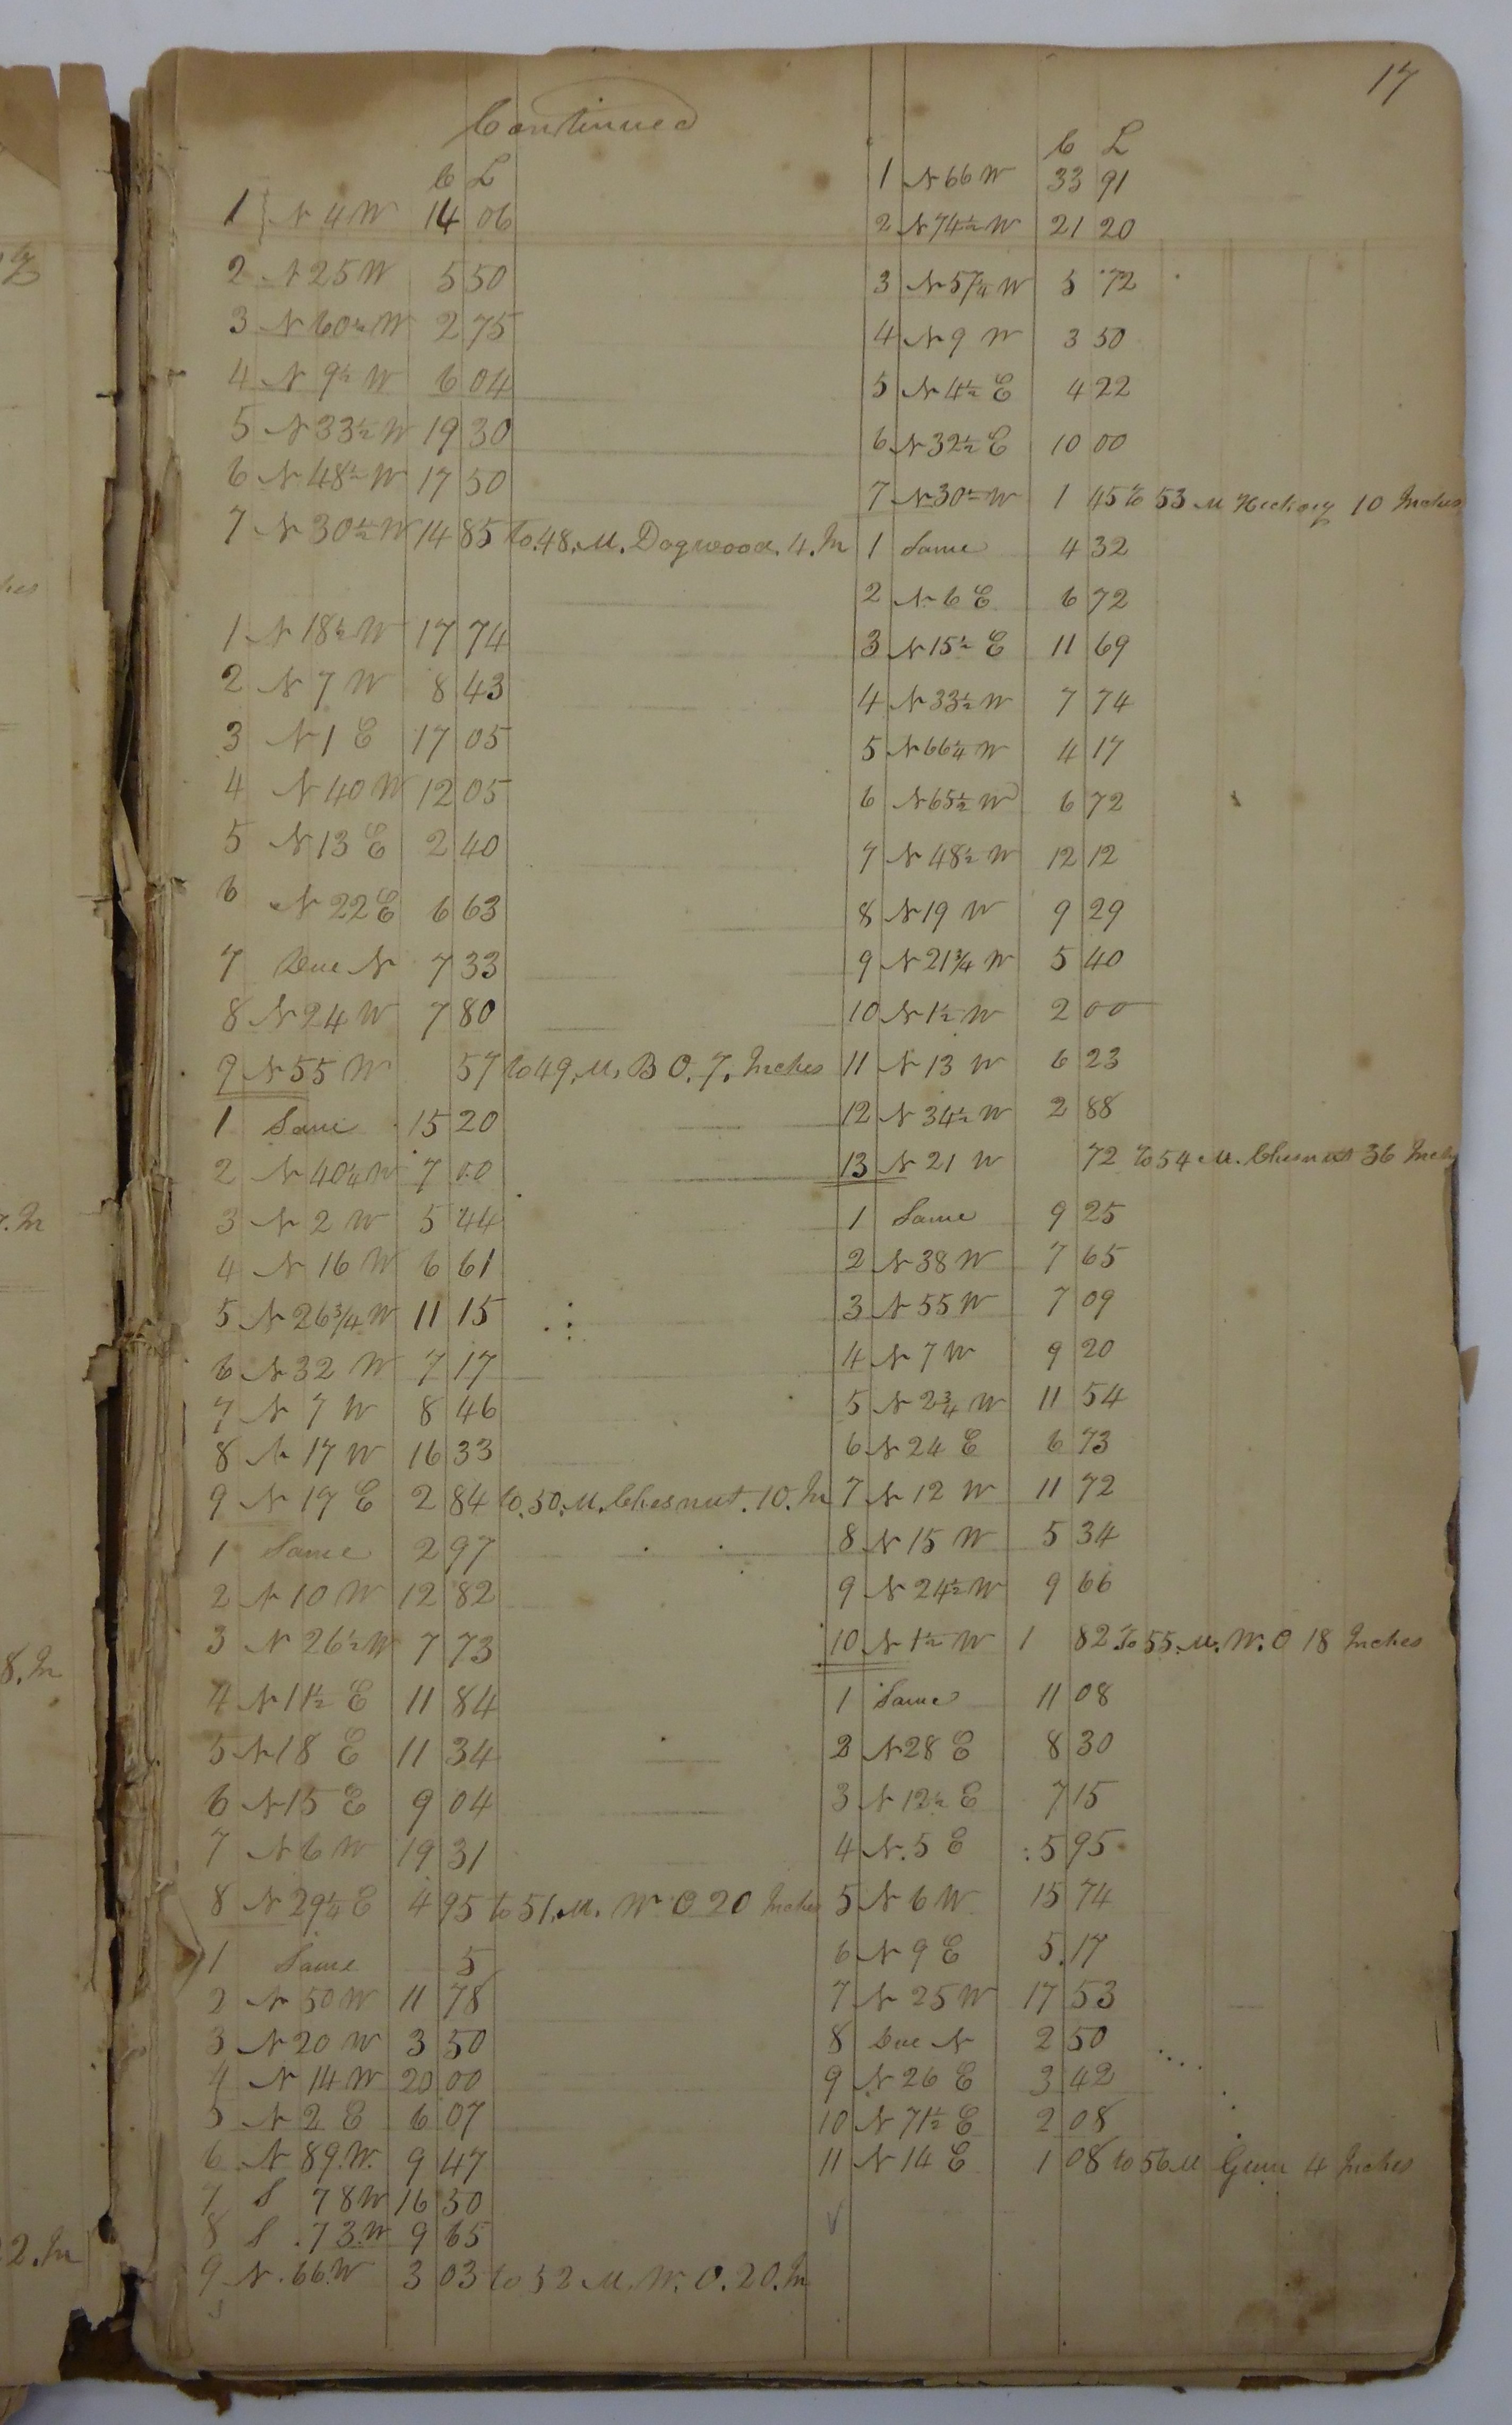 17
Continued
C L
1 N 4 W 14 06
2 N 25 W 5 50
3 N 60½ W 2 75
4 N 9½ W 6 04
5 N 33½ W 19 30
6 N 48½ W 17 50
7 N 30½ W 14 85 to 48. M. Dogwood. 4. In
1 N 18½ W 17 74
2 N 7 W 8 43
3 N 1 E 17 05
4 N 40 W 12 05
5 N 13 E 2 40
6 N 22 E 6 63
7 Due N 7 33
8 N 24 W 7 80
9 N 55 W 57 to 49. M. B O. 7. Inches
1 Same 15 20
2 N 40¼ W 7 00
3 N 2 W 5 44
4 N 16 W 6 61
5 N 26¾ W 11 15
6 N 32 W 7 17
7 N 7 W 8 46
8 N 17 W 16 33
9 N 19 E 2 84 to. 50. M. Chesnut. 10. In
1 Same 2 97
2 N 10 W 12 82
3 N 26½ W 7 73
4 N 11½ E 11 84
5 N 18 E 11 34
6 N 15 E 9 04
7 N 6 W 19 31
8 N 29¼ E 4 95 to 51. M. W O 20 Inches
1 Same 5
2 N 50 W 11 78
3 N 20 W 3 50
4 N 14 W 20 00
5 N 2 E 6 07
6 N 89. W. 9 47
7 S 78 W 16 50
8 S. 73. W 9 65
9 N. 66. W 3 03 to 52 M. W. O. 20. In
C L
1 N 66 W 33 91
2 N 74½ W 21 20
3 N 57¼ W 5 72
4 N 9 W 3 50
5 N 4½ E 4 22
6 N 32½ E 10 00
7 N 30½ W 1 45 to 53 M Hickory 10 Inches
1 Same 4 32
2 N 6 E 6 72
3 N 15½ E 11 69
4 N 33½ W 7 74
5 N 66¼ W 4 17
6 N 65½ W 6 72
7 N 48½ W 12 12
8 N 19 W 9 29
9 N 21¾ W 5 40
10 N 1½ W 2 00
11 N 13 W 6 23
12 N 34½ W 2 88
13 N 21 W 72 to 54 M. Chesnut 36 Inch
1 Same 9 25
2 N 38 W 7 65
3 N 55 W 7 09
4 N 7 W 9 20
5 N 2¾ W 11 54
6 N 24 E 6 73
7 N 12 W 11 72
8 N 15 W 5 34
9 N 24½ W 9 66
10 N 1½ W 1 82 To 55. M. W. O 18 Inches
1 Same 11 08
2 N 28 E 8 30
3 N 12½ E 7 15
4 N. 5 E 5 95
5 N 6 W 15 74
6 N 9 E 5 17
7 N 25 W 17 53
8 Due N 2 50
9 N 26 E 3 42
10 N 71½ E 2 08
11 N 14 E 1 08 to 56 M Gum 4 Inches
8. In
2. In